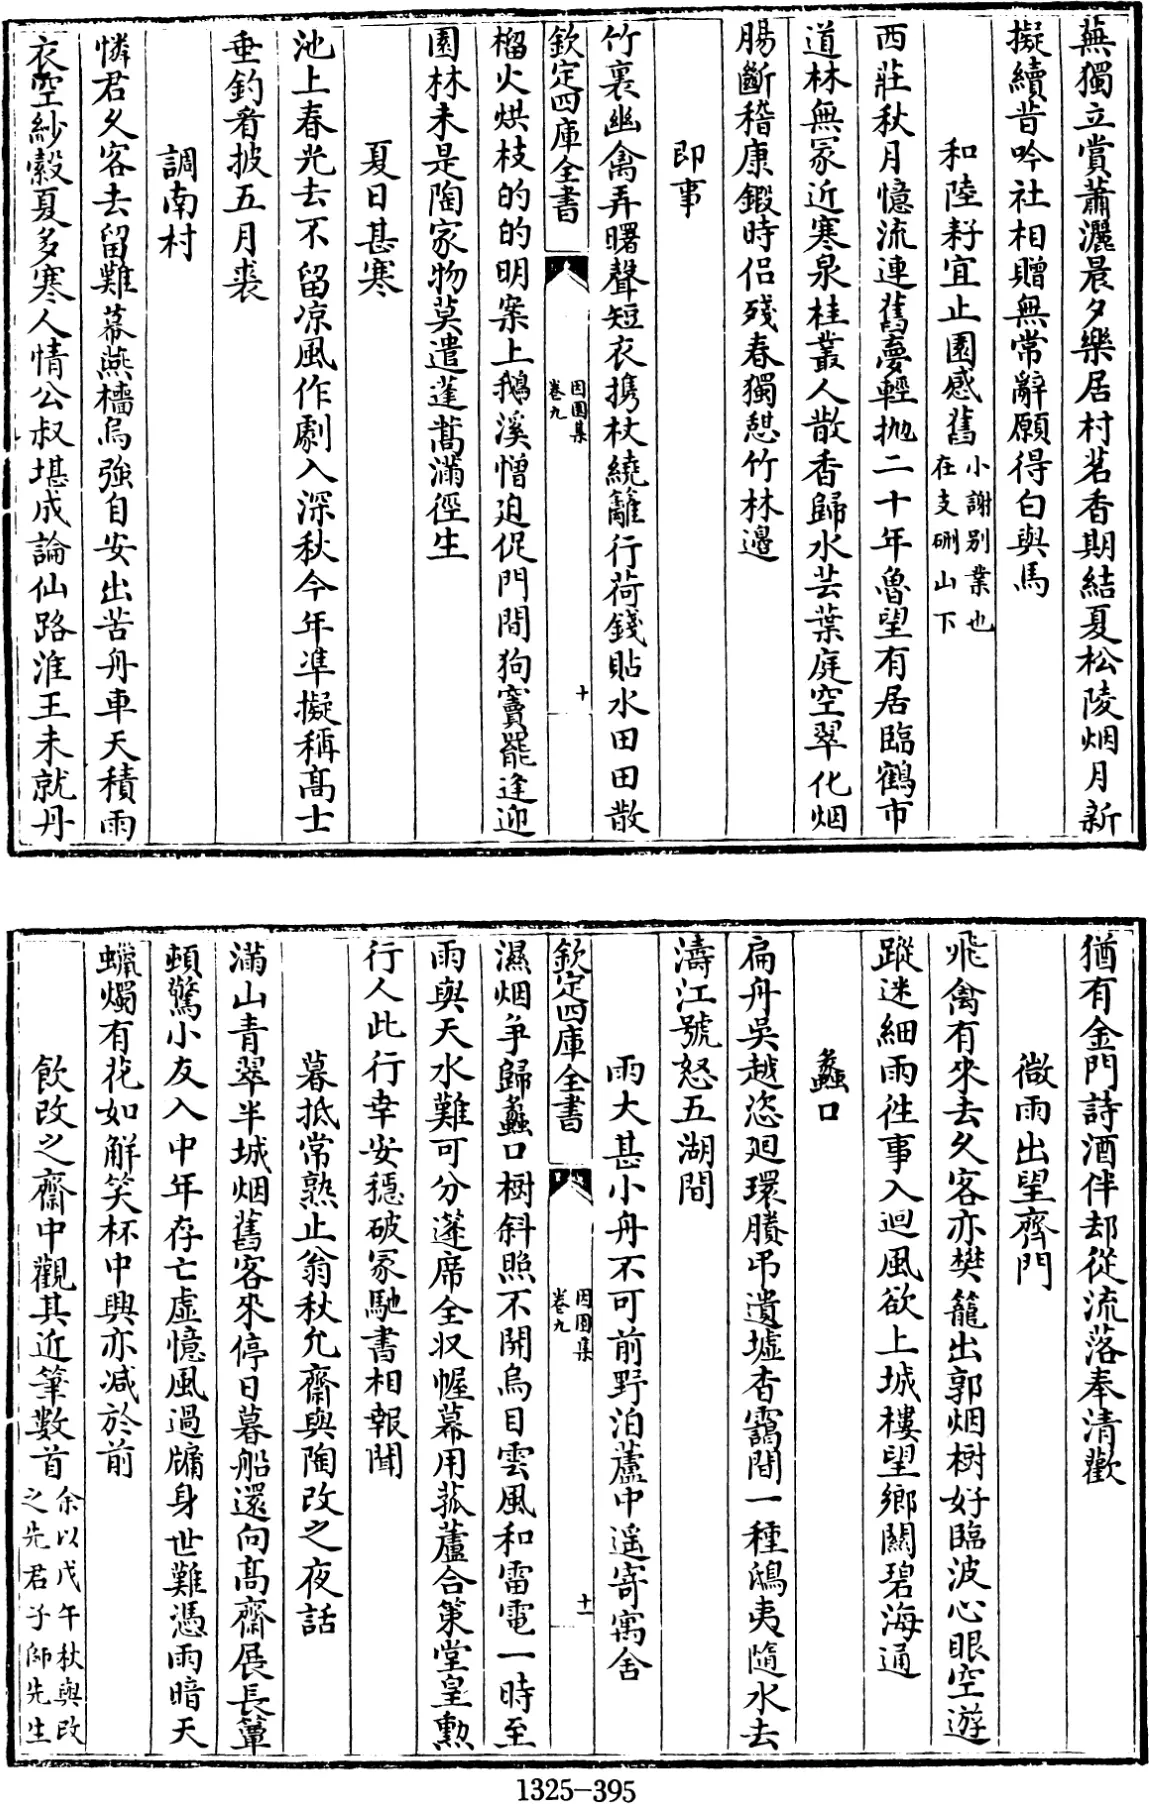 蕪獨立賞蕭灑晨夕樂居村茗香期結夏松陵烟月新
擬續昔吟社相贈無常辭願得白與馬
和陸耔宜止園感舊小謝别業也在支硎山下
西莊秋月憶流連舊夢輕抛二十年魯望有居臨鶴市
道林無冢近寒泉桂叢人散香歸水芸葉庭空翠化烟
腸斷稽康鍜時侶殘春獨憩竹林邊
即事
竹裏幽禽弄曙聲短衣携杖繞籬行荷錢貼水田田散
欽定四庫全書
因園集
卷九
十
榴火烘枝的的明案上鵝溪憎廹促門間狗竇罷逢迎
園林未是陶家物莫遣蓬蒿滿徑生
夏日甚寒
池上春光去不留凉風作劇入深秋今年凖擬稱髙士
垂釣看披五月裘
調南村
憐君乆客去留難幕燕檣烏強自安出苦舟車天積雨
衣空紗縠夏多寒人情公叔堪成論仙路淮王未就丹
猶有金門詩酒伴却從流落奉清歡
微雨出望齊門
飛禽有來去乆客亦樊籠出郭烟樹好臨波心眼空遊
蹤迷細雨徃事入迴風欲上城樓望鄉關碧海通
蠡口
扁舟吳越恣廻環賸吊遺墟杳靄間一種鴟夷隨水去
濤江號怒五湖間
雨大甚小舟不可前野泊蘆中遥寄寓舍
欽定四庫全書
因園集
卷九
十一
濕烟爭歸蠡口樹斜照不開烏目雲風和雷電一時至
雨與天水難可分蓬席全収幄幕用菰蘆合策堂皇勲
行人此行幸安穩破冢馳書相報聞
暮抵常熟止翁秋允齋與陶改之夜話
滿山青翠半城烟舊客來停日暮船還向髙齋展長簟
頓驚小友入中年存亡虛憶風過牖身世難憑雨暗天
蠟燭有花如解笑杯中興亦减於前
飲改之齋中觀其近筆數首余以戊午秋與改之先君子師先生
1325-395